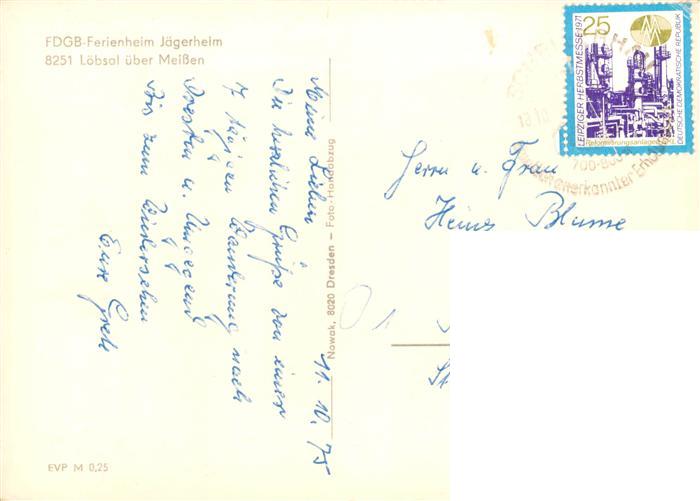 FDGB-Ferienheim Jägerheim
8251 Löbsal über Meißen
11.10.75
Meine Lieben
Die herzlichen Grüße von einer
7 tägigen Wanderung nach
Dresden u. Umgegend
Bis zum Wiedersehen
Eure Grete
EVP M 0,25
Nowak, 8020 Dresden – Foto-Handabzug
25
LEIPZIGER HERBSTMESSE 1971
DEUTSCHE DEMOKRATISCHE REPUBLIK
Reformierungsanlage
13.10
700-800
anerkannter Erho
Herrn u. Frau
Heinz Blume